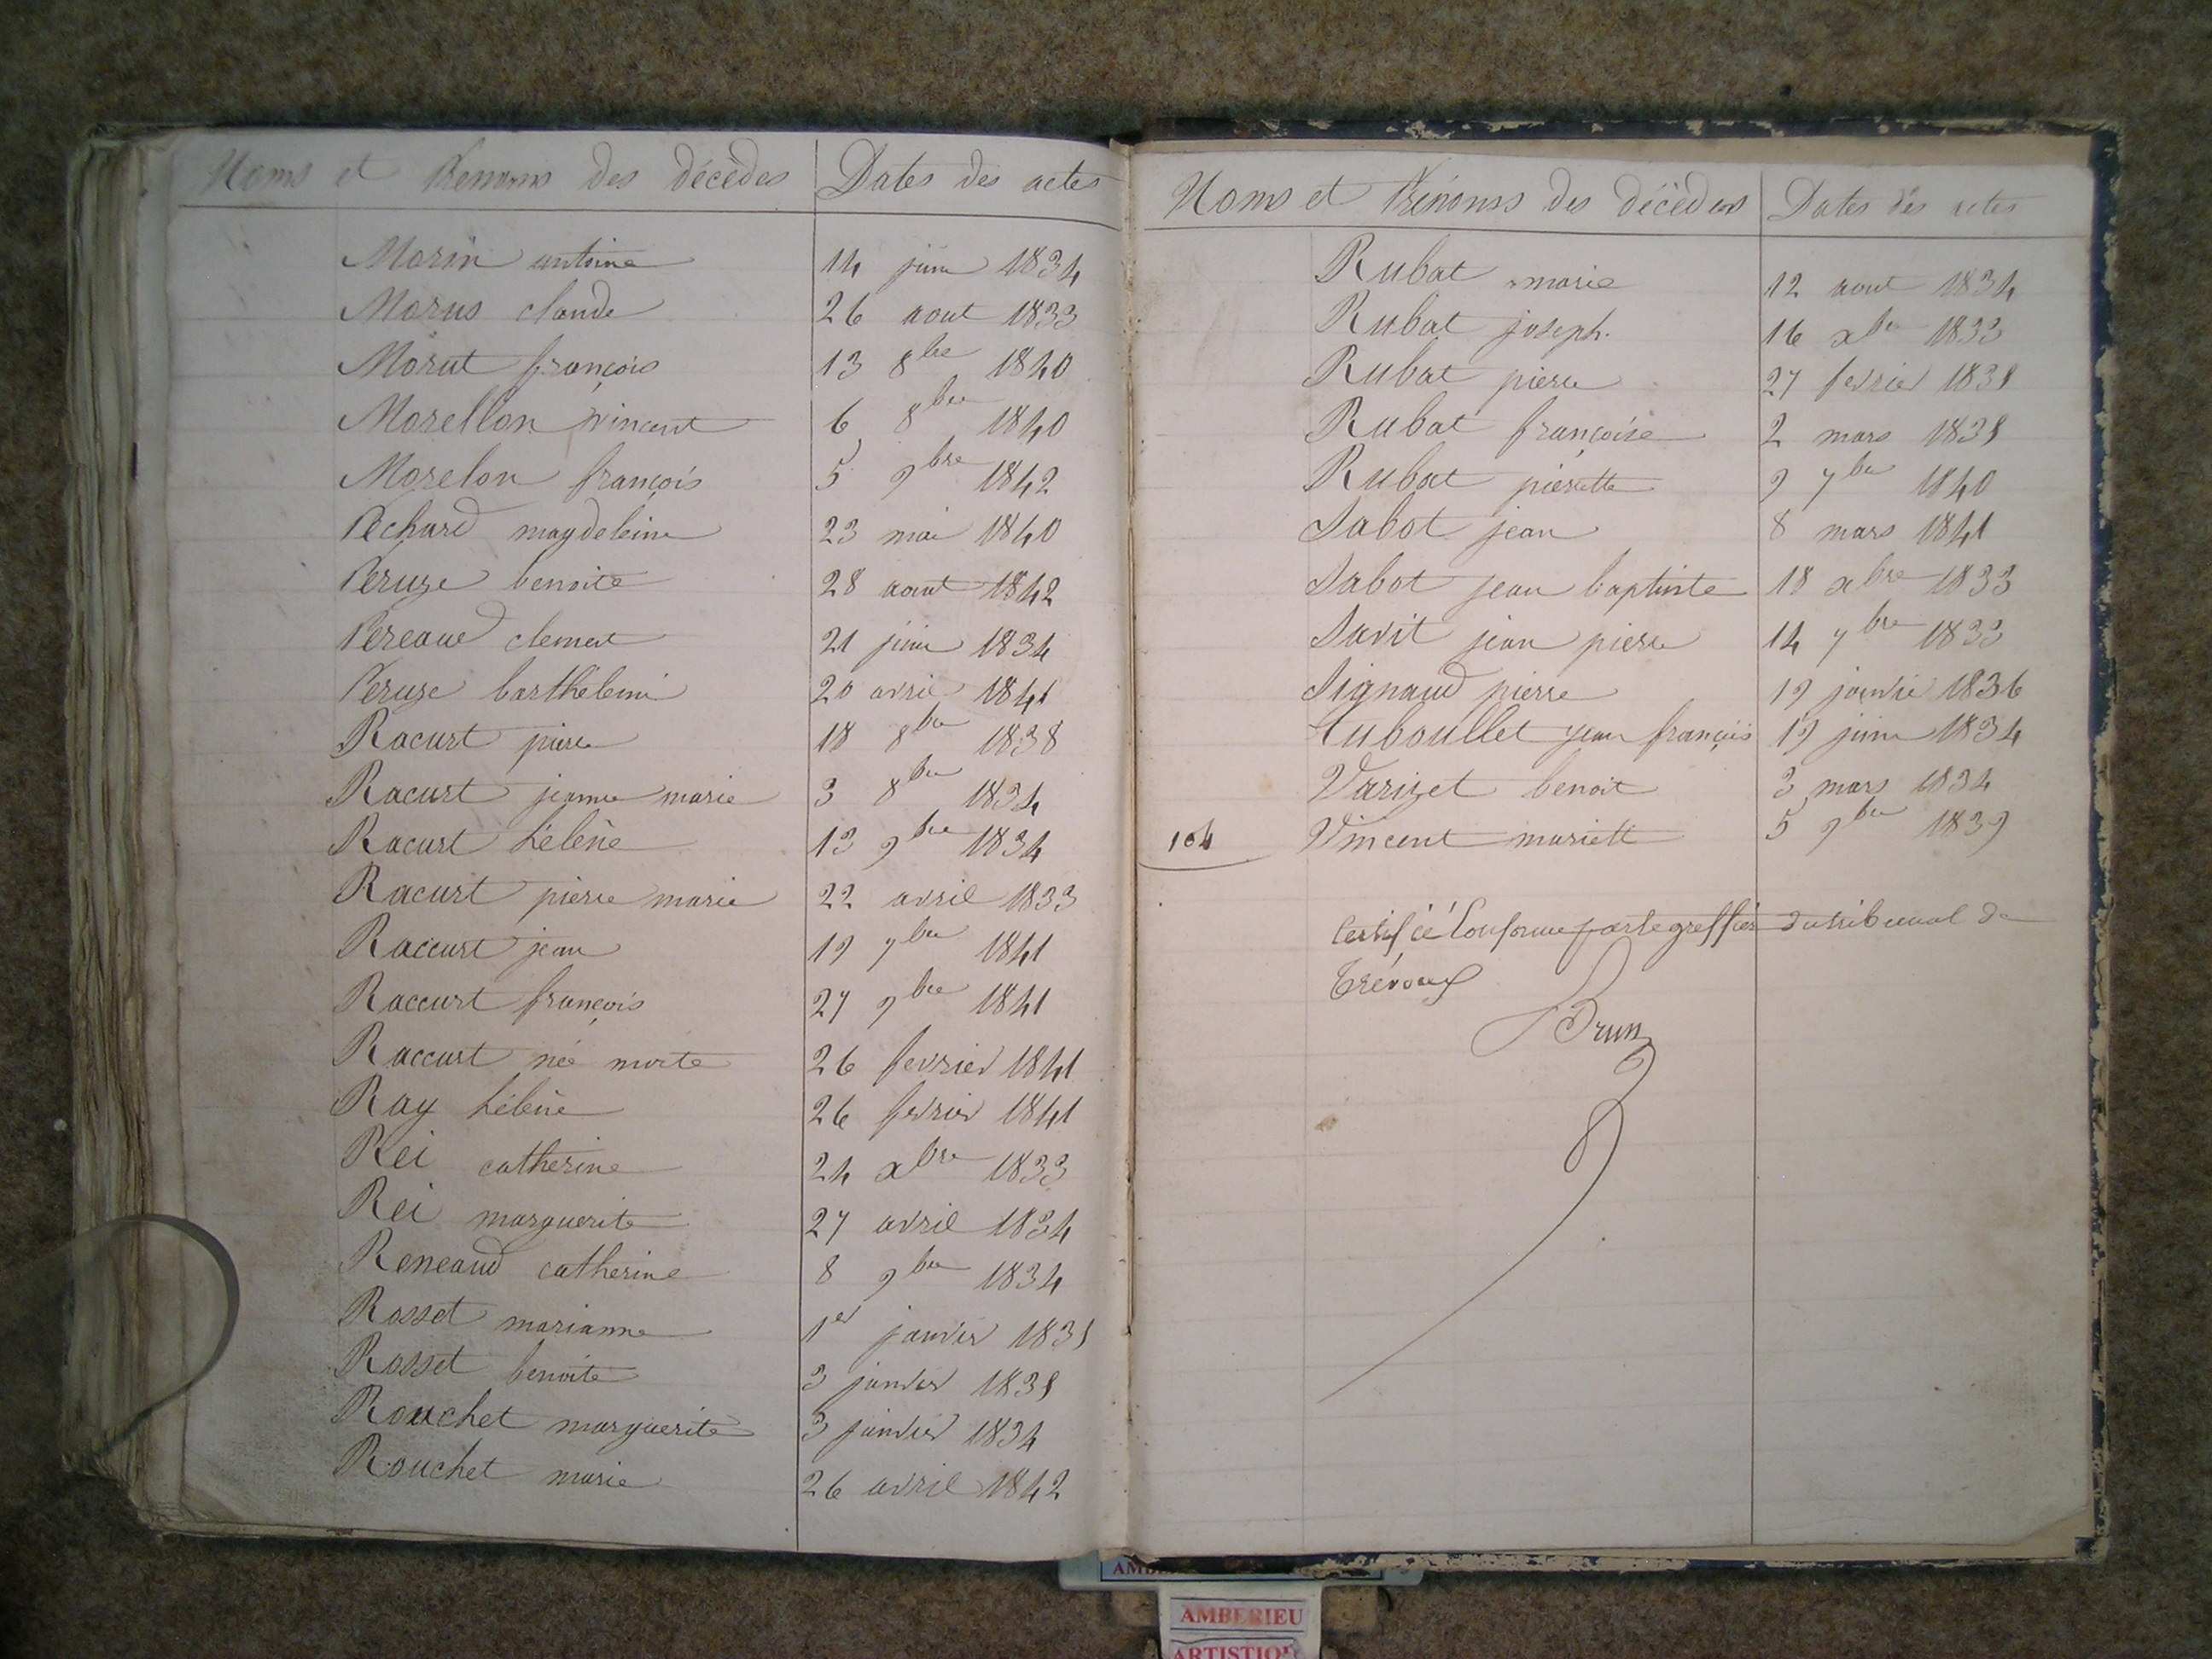 Noms et Prenoms des décèdes Dates des actes
Morin antoine 14 juin 1834
Morus claude 26 aout 1833
Morut françois 13 8bre 1840
Morellon vincent 6 8bre 1840
Morelon françois 5 9bre 1842
Pechard magdeleine 23 mai 1840
Peruze benoite 28 aout 1842
Pereaud clement 21 juin 1834
Peruze barthélemi 20 avril 1841
Racurt pierre 18 8bre 1838
Racurt jeanne marie 3 8bre 1834
Racurt hélène 13 9bre 1834
Racurt pierre marie 22 avril 1833
Raccurt jean 19 7bre 1841
Raccurt françois 27 9bre 1841
Raccurt née morte 26 fevrier 1841
Ray hélène 26 fevrier 1841
Rei catherine 24 xbre 1833
Rei marguerite 27 avril 1834
Reneaud catherine 8 9bre 1834
Rosset marianne 1er janvier
Rosset benoite 3 janvier
Rouchet marguerite 3 janvier 1834
Rouchet marie 26 avril 1842
Noms et Prénoms des décèdes Dates des actes
Rubat marie 12 aout 1834
Rubat joseph. 16 xbre 1833
Rubat pierre 27 fevrier
Rubat françoise 2 mars
Rubat pierrette 9 7bre 1840
Sabot jean 8 mars 1841
Sabot jean baptiste 18 xbre 1833
Savit jean pierre 14 7bre 1833
Signaud pierre 19 janvier 1836
Tuboullet jean françois 19 juin 1834
Varizet benoit 3 mars 1834
104 Vincent mariette 5 9bre 1839
Certifié Conforme par le greffier du tribunal de
Trévoux
Brun
AMBERIEU
ARTISTIQ